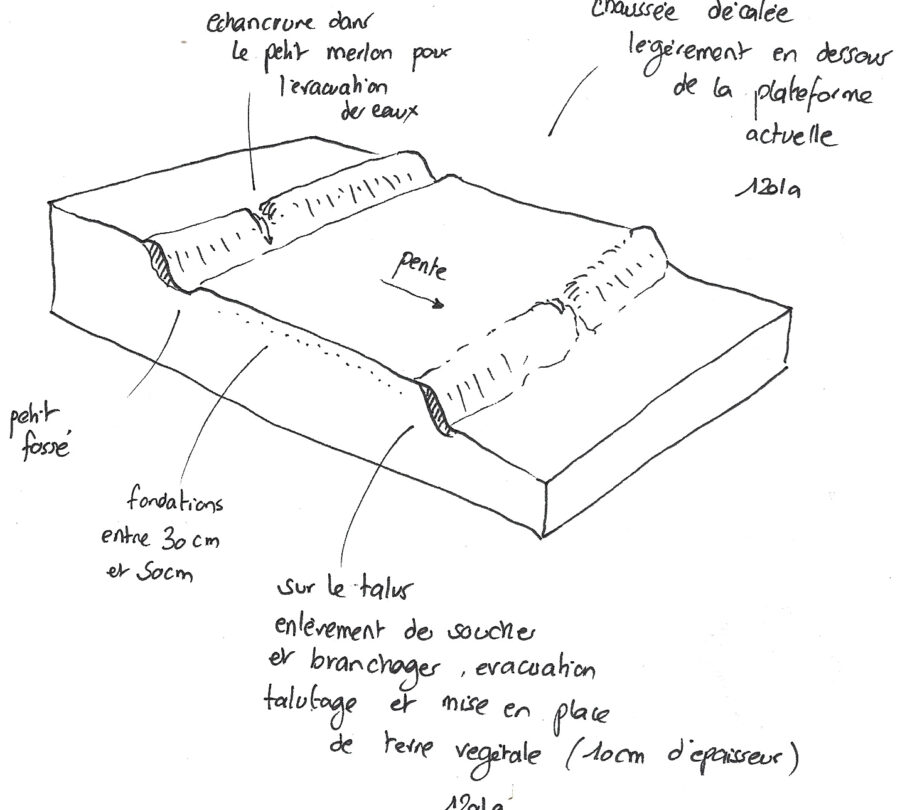 échancrure dans
le petit merlon pour
l'évacuation
des eaux
chaussée décalée
légèrement en dessous
de la plateforme
actuelle
pente
petit
fossé
fondations
entre 30 cm
et 50cm
sur le talus
enlèvement de souches
et branchages, evacuation
talutage et mise en place
de terre végétale (10cm d'épaisseur)